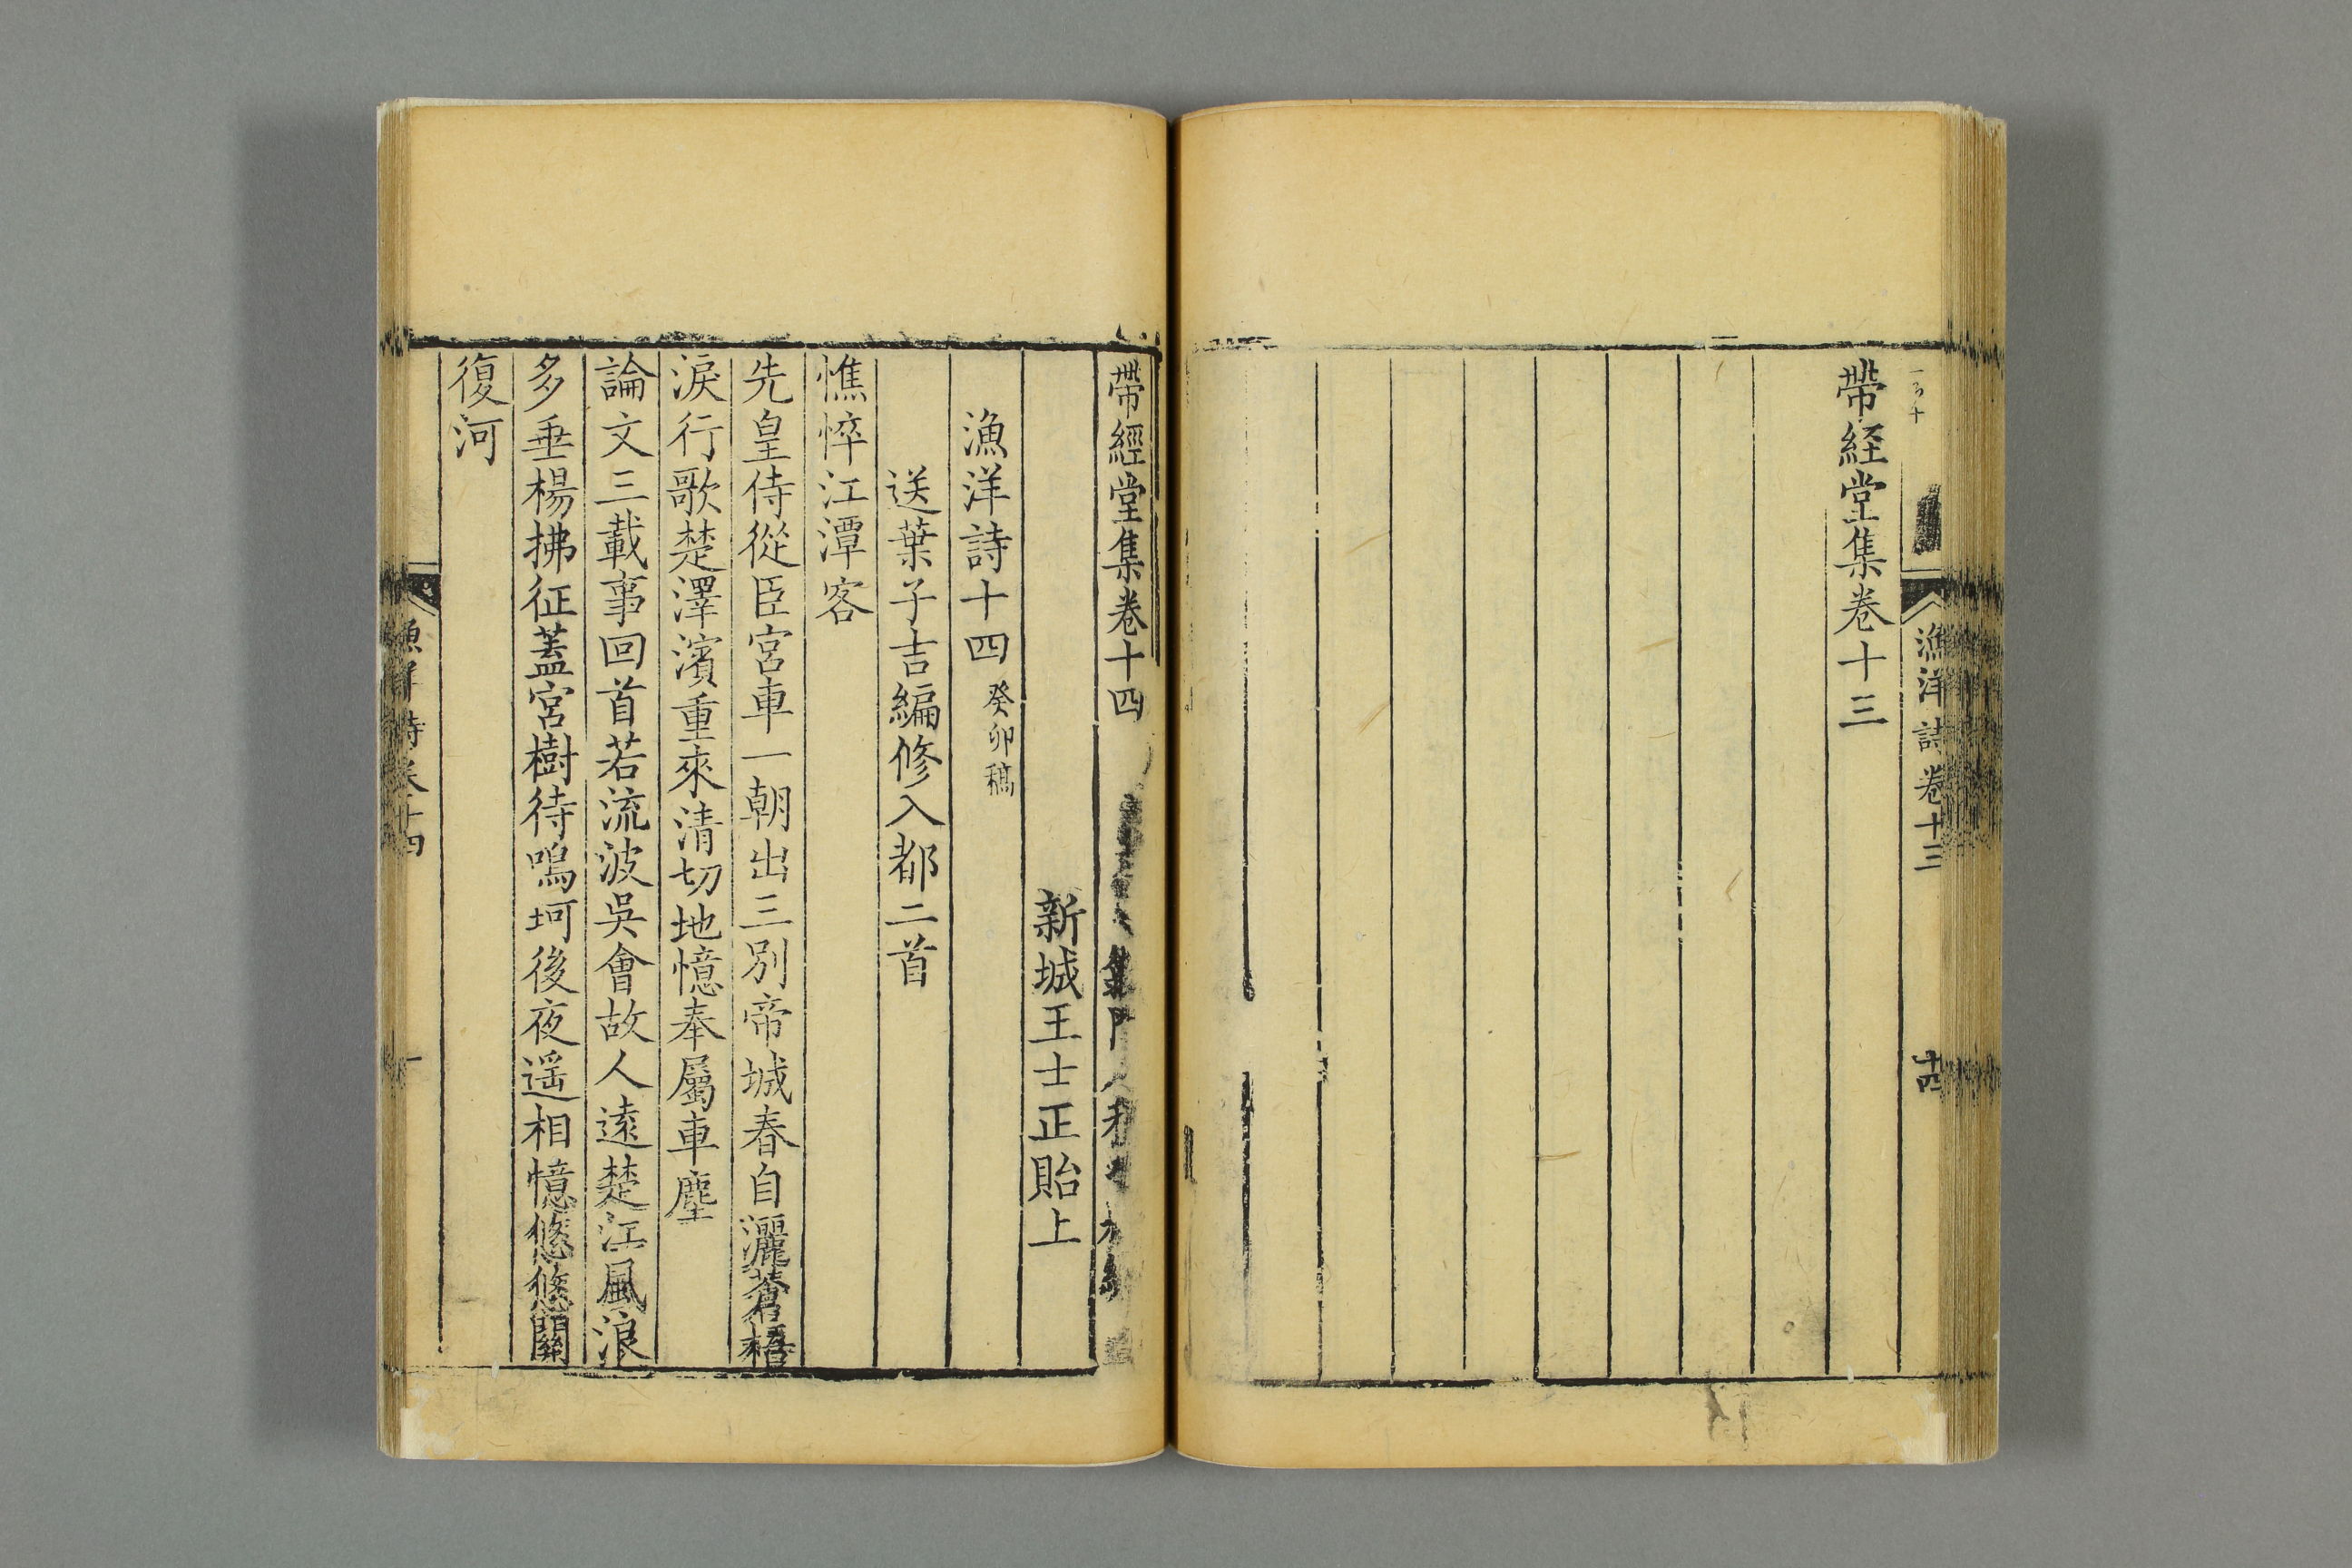 漁洋詩卷十三
十四
帶經堂集卷十三
帶經堂集卷十四
新城王士正貽上
漁洋詩十四 癸卯稿
送葉子吉編修入都二首
憔悴江潭客
先皇侍從臣宮車一朝出三別帝城春自灑蒼梧
淚行歌楚澤濱重來清切地憶奉屬車塵
論文三載事回首若流波吳會故人遠楚江風浪
多垂楊拂征蓋宮樹待鳴珂後夜遥相憶悠悠關
復河
漁洋詩卷十四
一